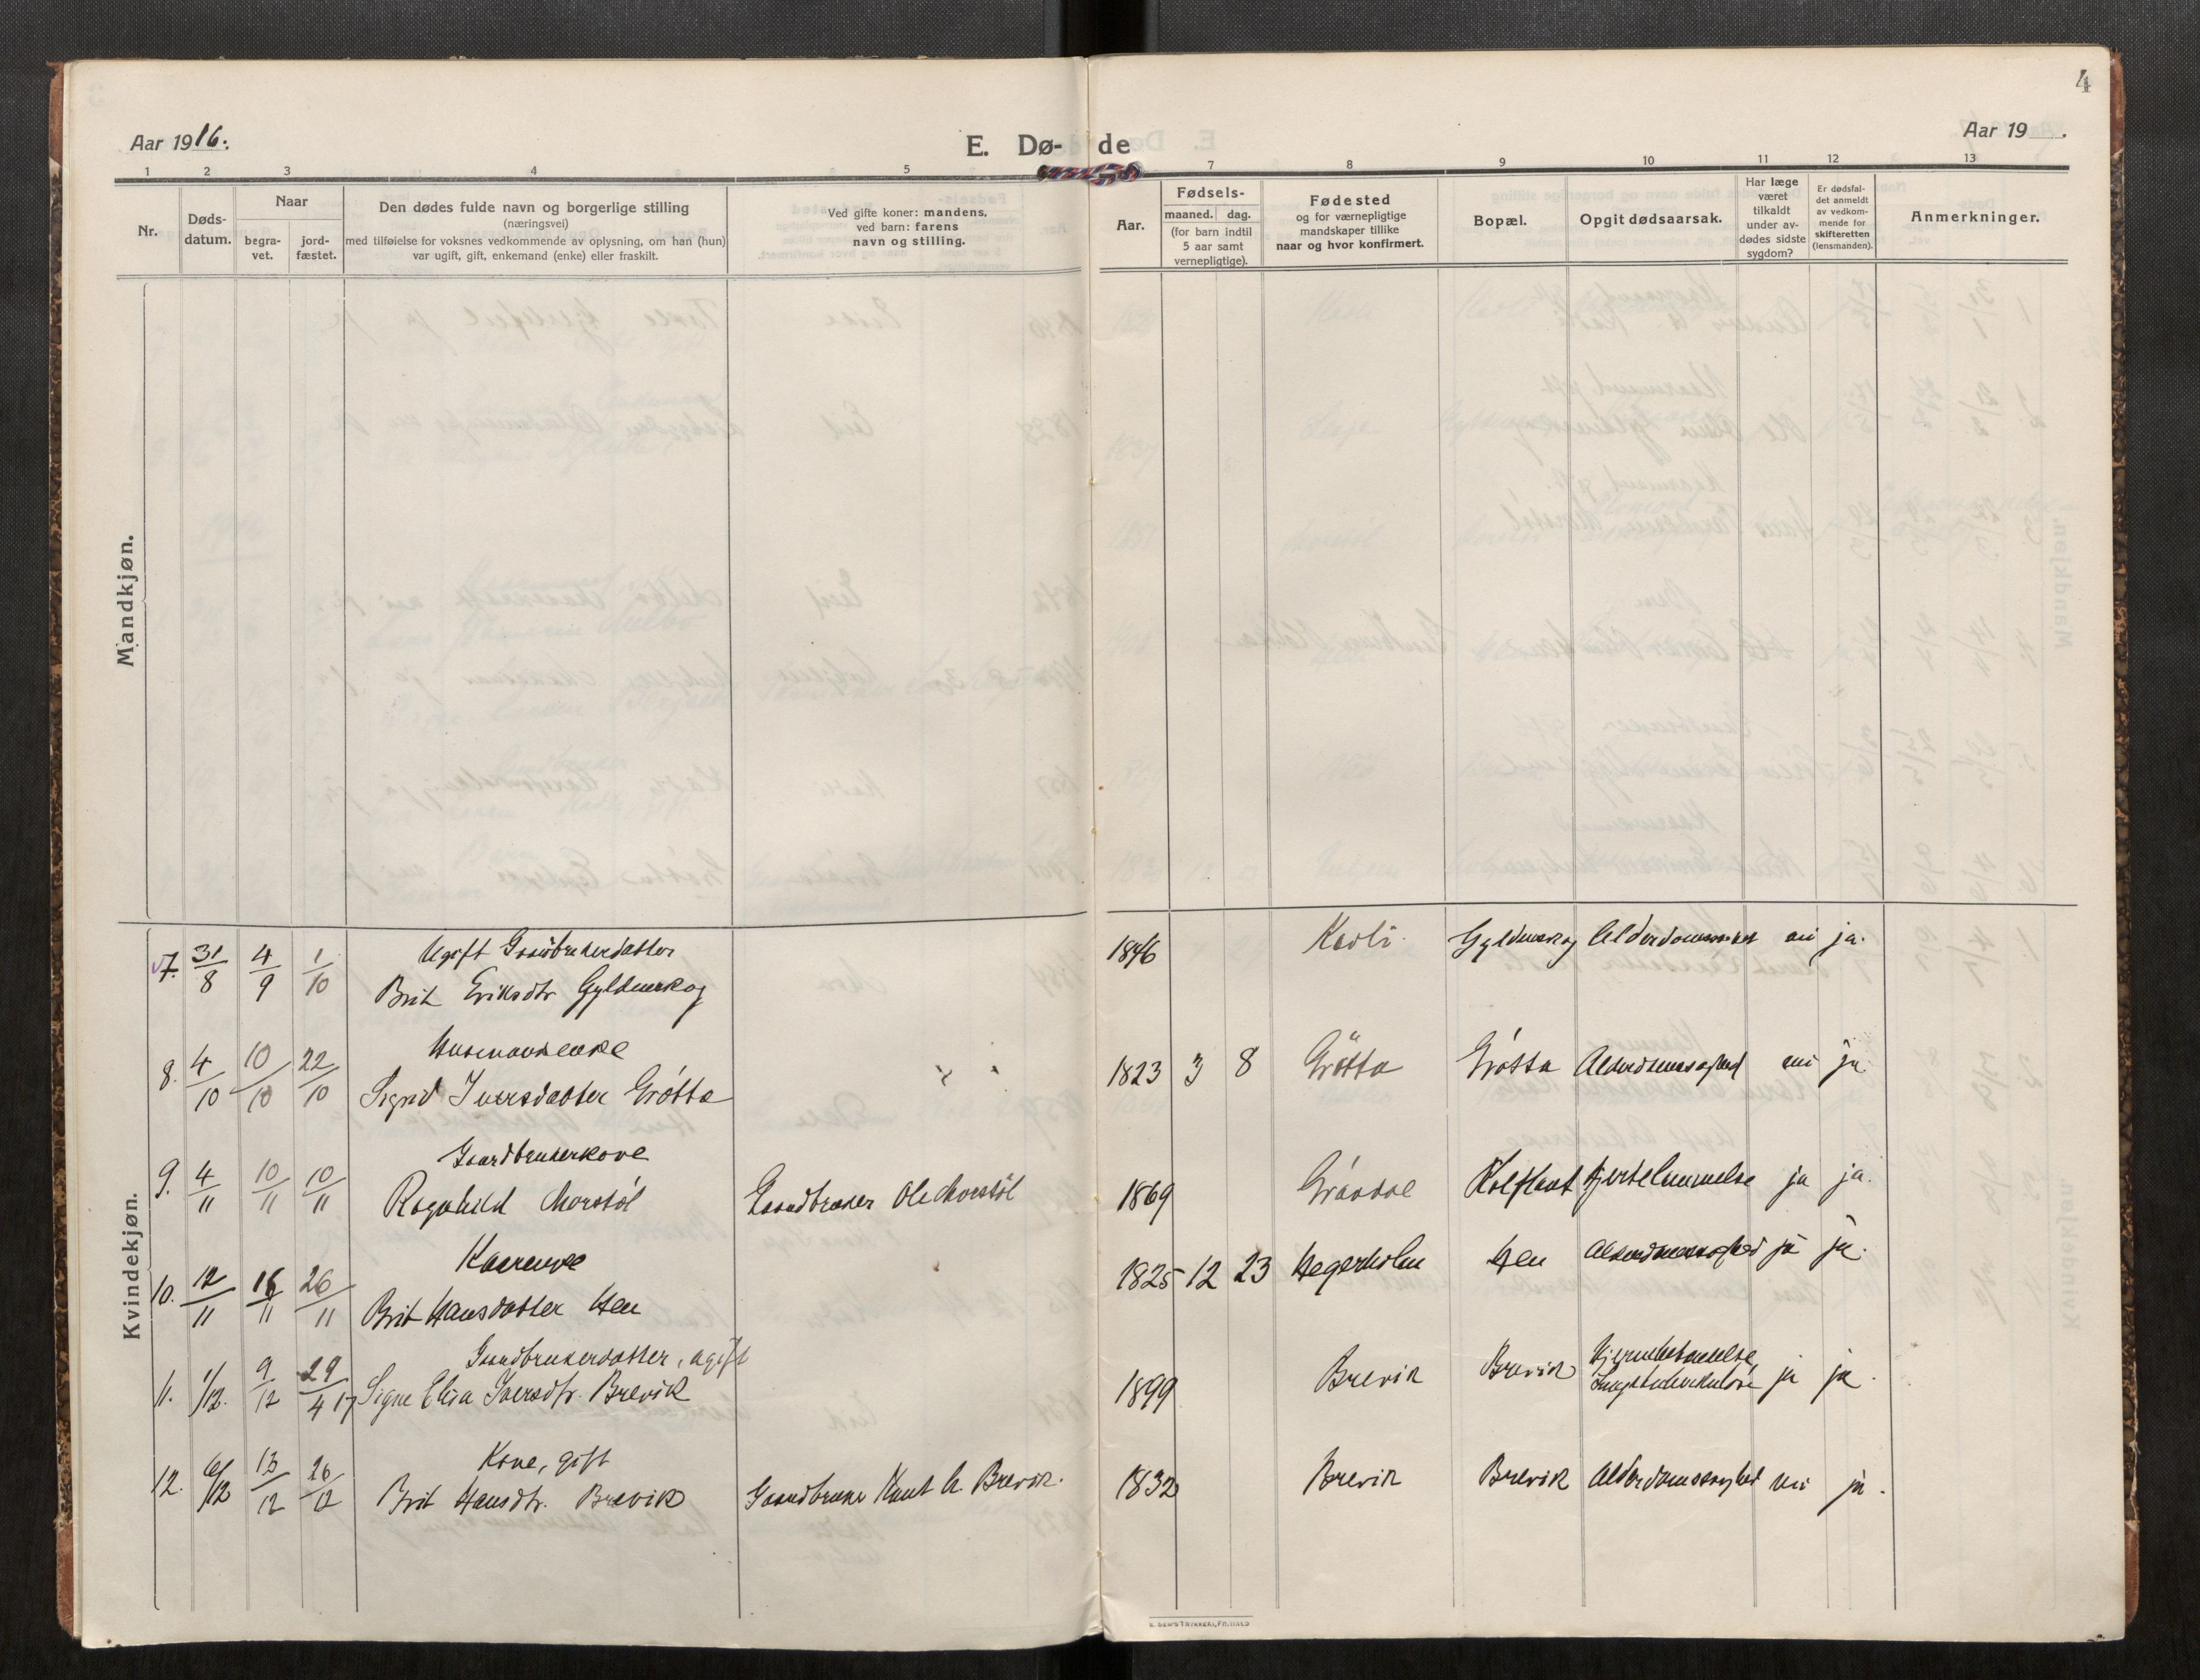 4
Aar 1916.
E. Dø-de
Aar 19 .
1 2 3 4 5 7 8 9 10 11 12 13
Nr.
Døds-
datum.
Naar
begra-
vet.
jord-
fæstet.
Den dødes fulde navn og borgerlige stilling
(næringsvei)
med tilføielse for voksnes vedkommende av oplysning, om han (hun)
var ugift, gift, enkemand (enke) eller fraskilt.
Ved gifte koner: mandens,
ved barn: farens
navn og stilling.
Aar.
Fødsels-
maaned. dag.
(for barn indtil
5 aar samt
vernepligtige).
Fødested
og for værnepligtige
mandskaper tillike
naar og hvor konfirmert.
Bopæl.
Opgit dødsaarsak.
Har læge
været
tilkaldt
under av-
dødes sidste
sygdom?
Er dødsfal-
det anmeldt
av vedkom-
mende for
skifteretten
(lensmanden).
Anmerkninger.
Mandkjøn.
Kvindekjøn.
Ugift Gaardbrukerdatter
7. 31/8 4/9 1/10 Brit Eriksdtr Gyldenskog 1846 Kavli. ja.
Husmandsenke
8. 4/10 10/10 22/10 Sigrid Iversdatter Grötta 1823 3 8 Grötta Grötta Alderdomssvaghed ja.
Gaardbrukerkone
9. 4/11 10/11 10/11 Ragnhild Morstøl Gaardbruker Ole Morstøl 1869 Kolflaat Hjertelammelse ja ja.
Kaarenke
10. 12/11 16/11 26/11 Brit Hansdatter Hen 1825 12 23 Hegerholm Hen Alderdomssvaghed ja ja.
Gaardbrukerdatter, ugift
11. 1/12. 9/12 29/4 17 Signe Elisa Iversdtr. Brevik 1899 Brevik Brevik ja ja.
Kone, gift
12. 6/12 13/12 26/12 Brit Hansdtr. Brevik Gaardbruker Knut A. Brevik. 1832 Brevik Brevik Alderdomssvaghed nei ja.